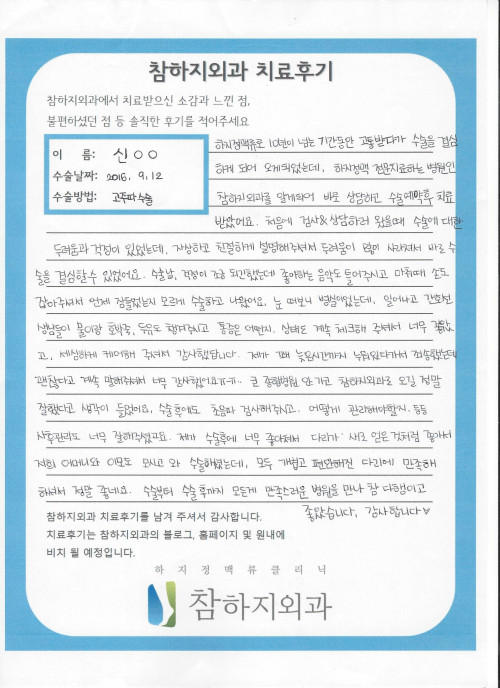 참하지외과 치료후기
참하지외과에서 치료받으신 소감과 느낀 점,
불편하셨던 점 등 솔직한 후기를 적어주세요
이 름: 신○○
수술날짜: 2016. 9. 12
수술방법: 고주파수술
하지정맥류로 10년이 넘는 기간동안 고통받다가 수술을 결심
하게 되어 오게되었는데, 하지정맥 전문치료하는 병원인
참하지외과를 알게되어 바로 상담하고 수술예약후 치료
받았어요. 처음에 검사&상담하러 왔을때 수술에 대한
두려움과 걱정이 있었는데, 자상하고 친절하게 설명해주셔서 두려움이 많이 사라져서 바로 수
술을 결심할수 있었어요. 수술날, 걱정이 조금 되긴했는데 좋아하는 음악도 들어주시고 마취때 손도
잡아주셔서 언제 잠들었는지 모르게 수술하고 나왔어요. 눈 떠보니 병실이었는데, 일어나고 간호선
생님들이 물이랑 호박죽, 두유도 챙겨주시고 통증은 어떤지, 상태도 계속 체크해 주셔서 너무 좋았
고, 세심하게 케어해 주셔서 감사했답니다. 제가 꽤 늦은시간까지 누워있다가서 죄송했는데
괜찮다고 계속 말해주셔서 너무 감사했어요ㅠㅠ.. 큰 종합병원 안가고 참하지외과로 오길 정말
잘했다고 생각이 들었어요, 수술후에도 초음파 검사해주시고. 어떻게 관리해야할지. 등등
사후관리도 너무 잘해주셨고요. 제가 수술후에 너무 좋아져서 다리가 새로 얻은 것처럼 좋아서
저희 어머니와 이모도 모시고 와 수술하셨는데, 모두 가볍고 편안해진 다리에 만족해
하셔서 정말 좋네요. 수술부터 수술후까지 모든게 만족스러운 병원을 만나 참 다행이고
좋았습니다, 감사합니다♡
참하지외과 치료후기를 남겨 주셔서 감사합니다.
치료후기는 참하지외과의 블로그, 홈페이지 및 원내에
비치 될 예정입니다.
하지정맥류클리닉
참하지외과